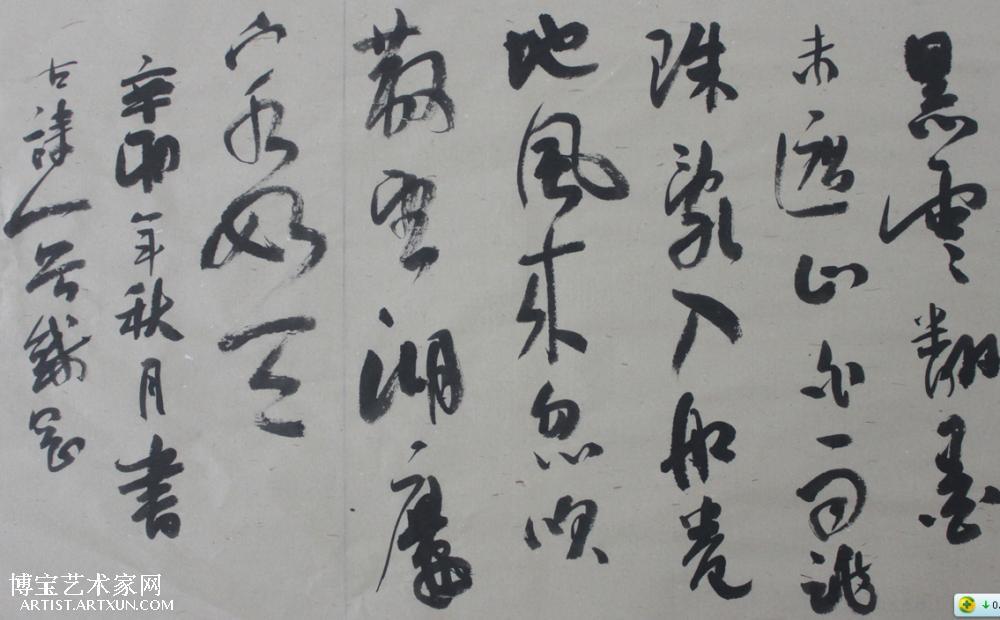 黑雲翻墨
未遮山白雨跳
珠亂入船卷
地風來忽吹
散望湖樓
下水如天
辛卯年秋月書
古詩一首
博宝艺术家网
ARTIST.ARTXUN.COM
↓0.